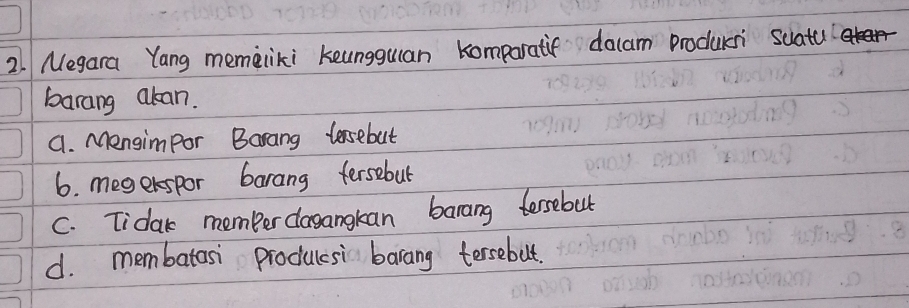 2. Negara Yang memiliki keunggulan komparatif dalam produksi suatu akan
barang akan.
a. Mengimpor Barang tersebut
b. megekspor barang tersebut
c. Tidak memperdagangkan barang tersebut
d. membatasi produksi barang tersebut.